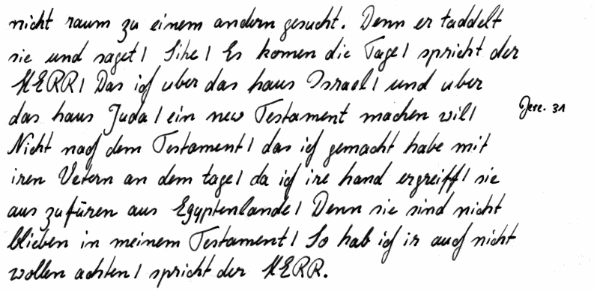 nicht raum zu einem andern gesucht. Denn er taddelt
sie und saget / Sihe / Es komen die Tage / spricht der
HERR / Das ich uber das haus Israel / und uber
das haus Juda / ein new Testament machen wil /
Jere. 31
Nicht nach dem Testament / das ich gemacht habe mit
iren Vetern an dem tage / da ich ire hand ergreiff / sie
aus zufüren aus Egyptenlande / Denn sie sind nicht
blieben in meinem Testament / So hab ich ir auch nicht
wollen achten / spricht der HERR.